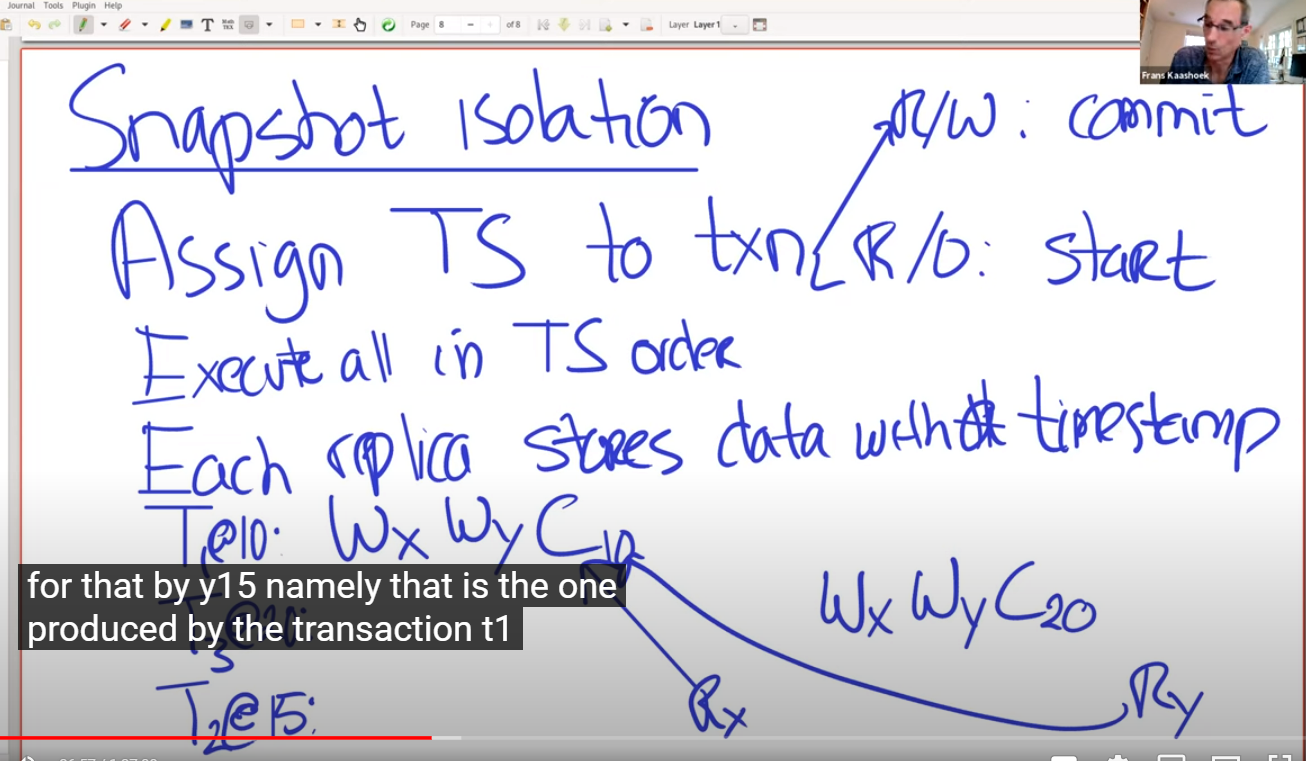 Journal Tools Plugin Help
Page 8 of 8 Layer Layer 1
Frans Kaashoek
Snapshot isolation
R/W: commit
Assign TS to txn R/O: start
Execute all in TS order
Each replica stores data with timestamp
T1@10: Wx Wy C10
Wx Wy C20
for that by y15 namely that is the one
produced by the transaction t1
T3@20:
T2@15: Rx Ry